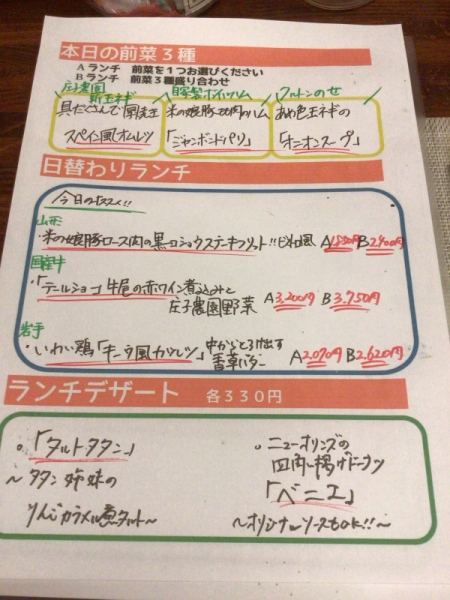 本日の前菜3種
Aランチ 前菜を1つお選びください
Bランチ 前菜3種盛り合わせ
庄子農園
新玉ネギ
自家製ホワイトハム
クルトンのせ
具だくさんで
スペイン風オムレツ
米の娘豚 ハム
「ジャンボンドパリ」
あめ色玉ネギの
「オニオンスープ」
日替わりランチ
今日のオススメ!!
山形
・米の娘豚ロース肉の黒コショウステーキフリット!! ビストロ風 A1,850円 B2,400円
国産牛
・「テールショコ」牛尾の赤ワイン煮込みと
庄子農園野菜 A3,200円 B3,750円
岩手
・いわい鶏「キーウ風カツレツ」中からとろけ出す
香草バター A2,070円 B2,620円
ランチデザート 各330円
。「タルトタタン」
～タタン姉妹の
りんごカラメル煮タルト～
。ニューオリンズの
四角い揚げドーナツ
「ベニエ」
～オリジナルソースもOK!!～